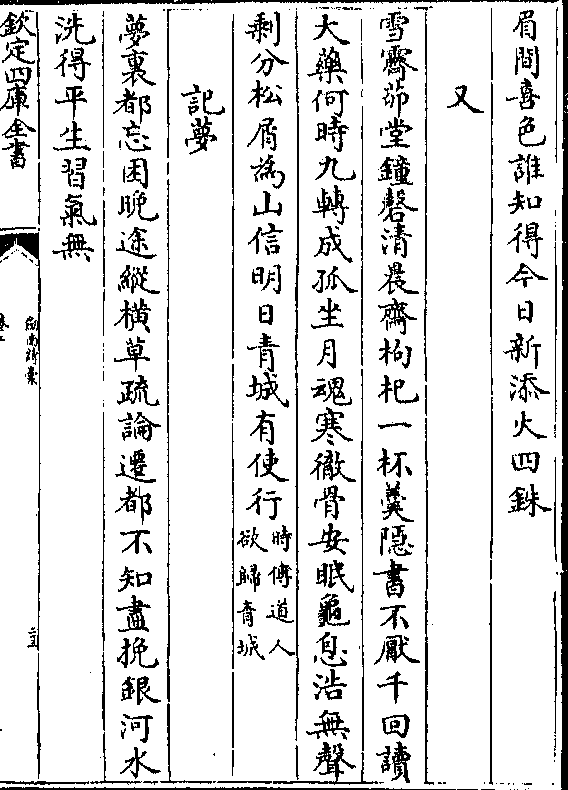 眉間喜色誰知得今日新添火四銖
又
雪霽茆堂鐘磬清晨齋枸杞一杯羮隱書不厭千回讀
大藥何時九轉成孤坐月魂寒徹骨安眠龜息浩無聲
剩分松屑為山信明日青城有使行時傅道人欲歸青城
記夢
夢裏都忘困晚途縱橫草疏論遷都不知盡挽銀河水
洗得平生習氣無
欽定四庫全書
劍南詩稾